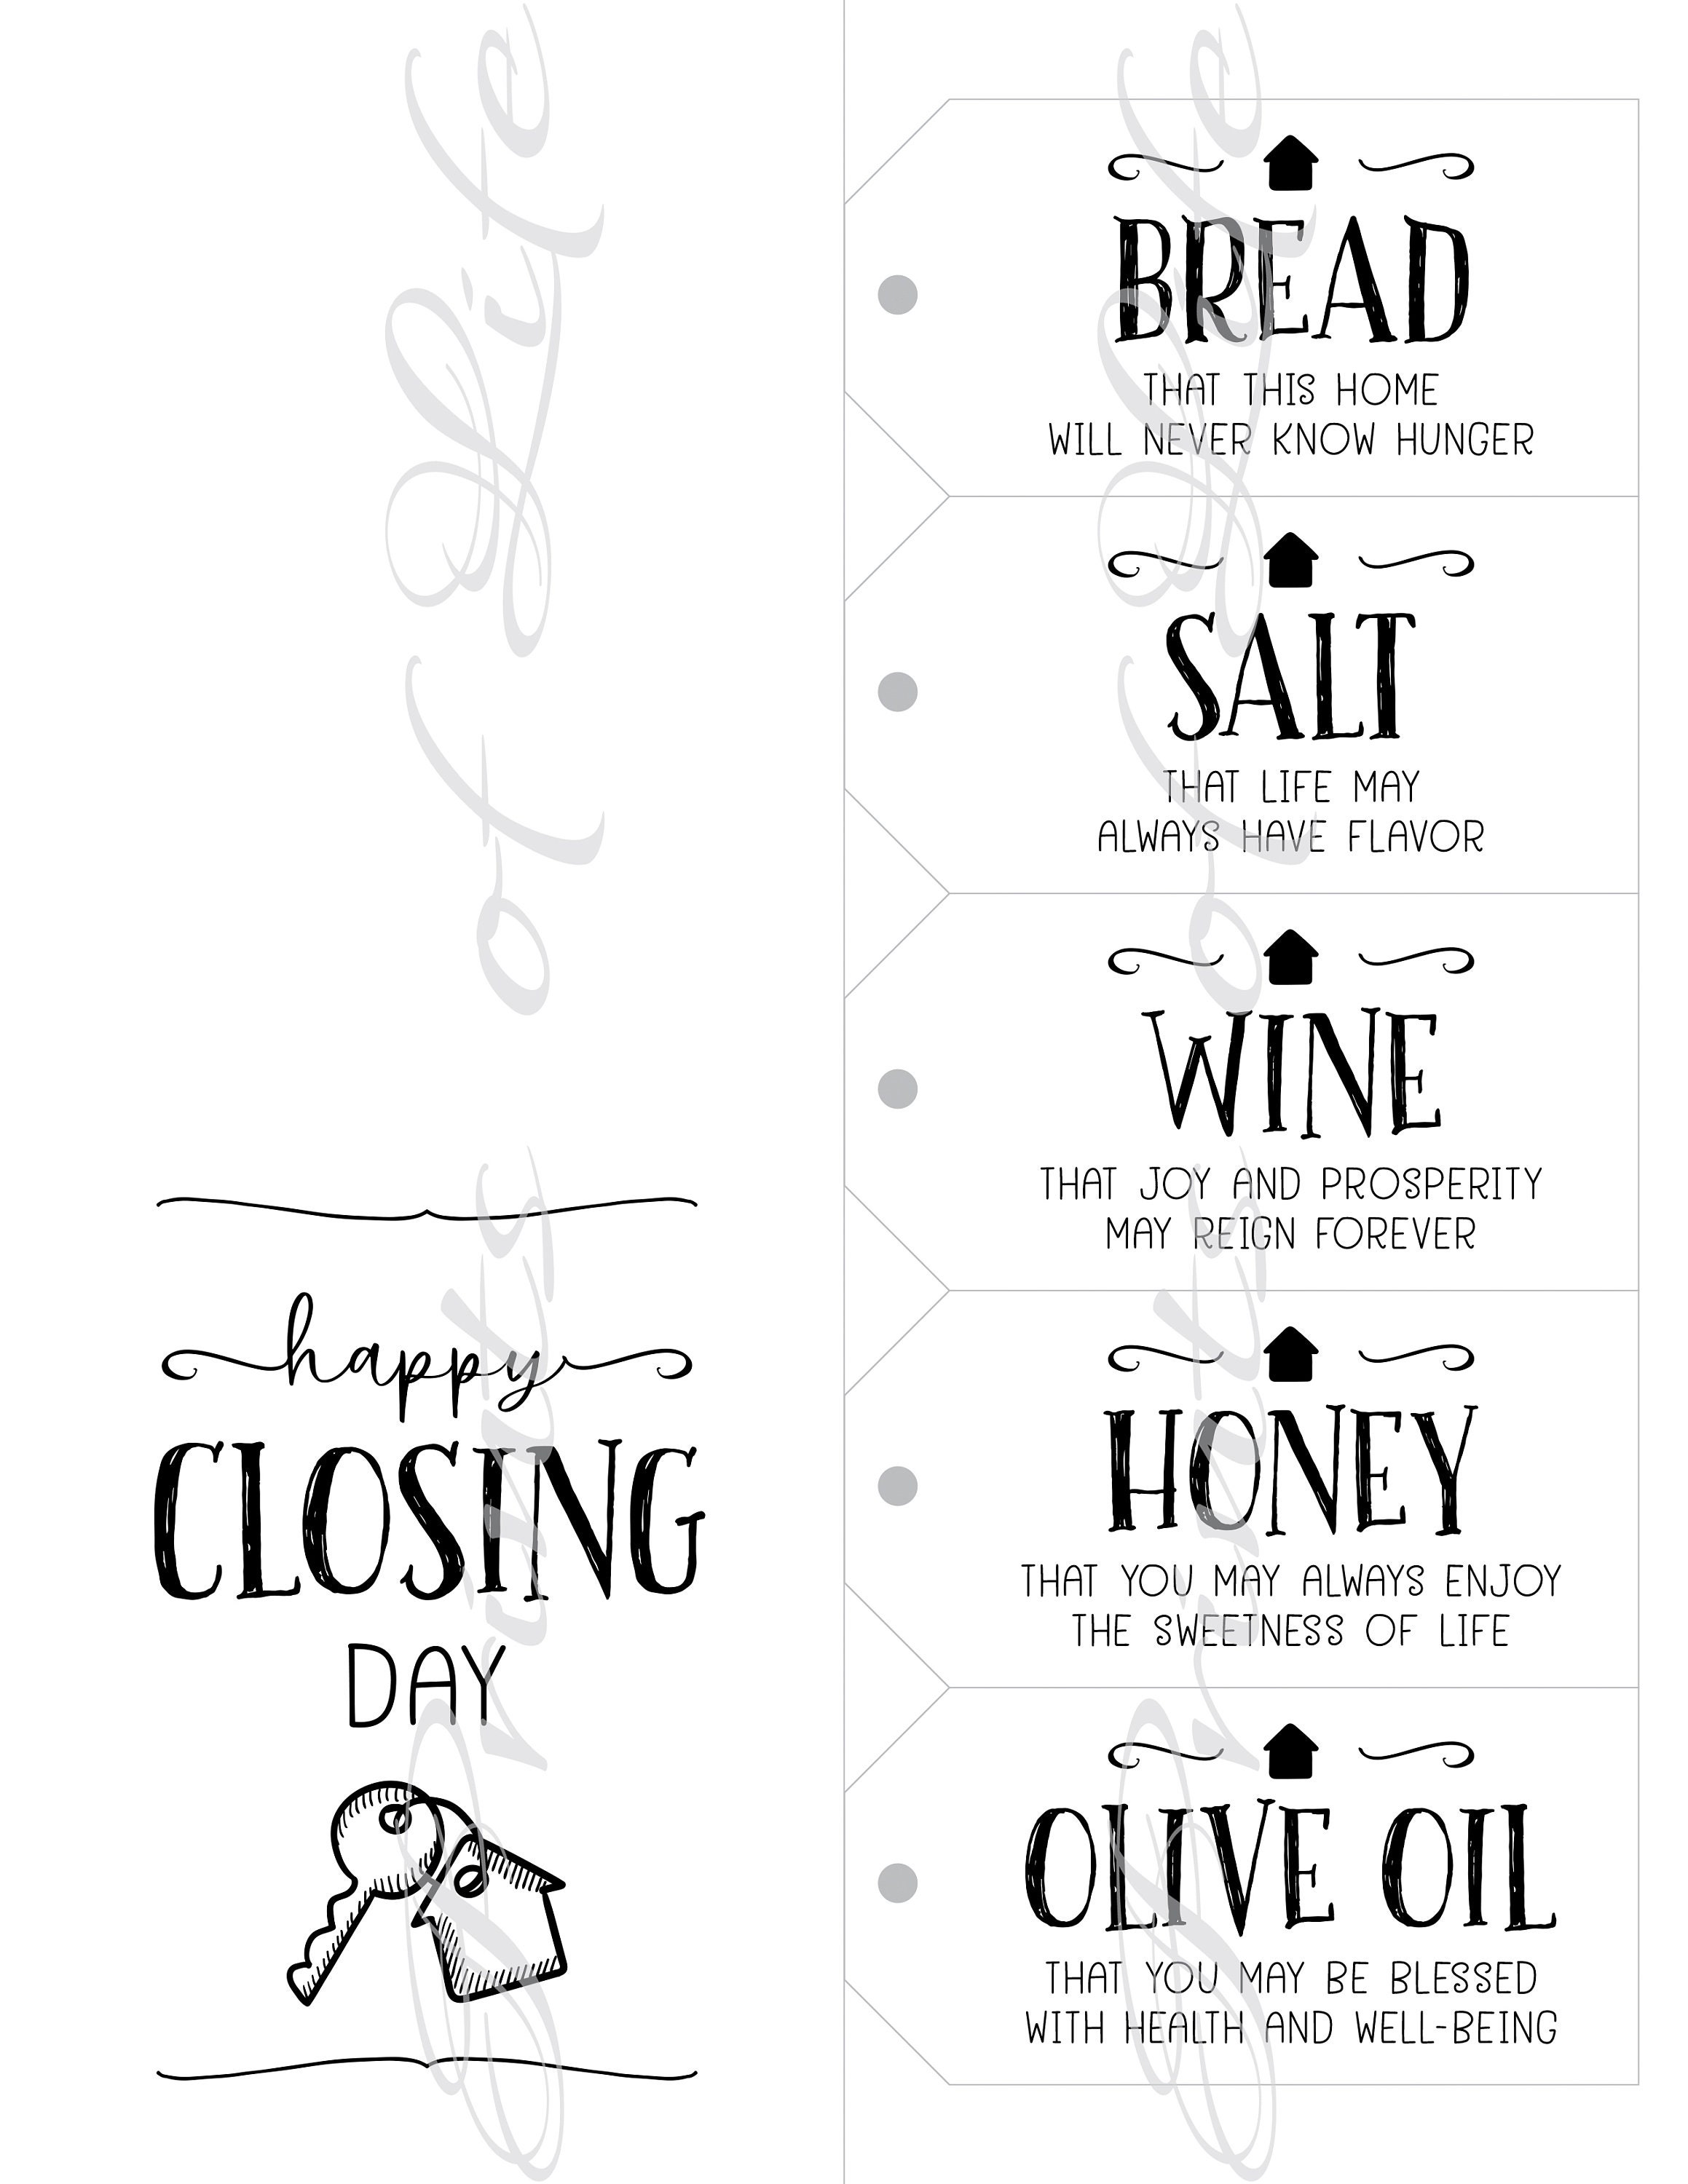 happy
CLOSING
DAY
BREAD
THAT THIS HOME
WILL NEVER KNOW HUNGER
SALT
THAT LIFE MAY
ALWAYS HAVE FLAVOR
WINE
THAT JOY AND PROSPERITY
MAY REIGN FOREVER
HONEY
THAT YOU MAY ALWAYS ENJOY
THE SWEETNESS OF LIFE
OLIVE OIL
THAT YOU MAY BE BLESSED
WITH HEALTH AND WELL-BEING
Prints of Life
Prints of Life